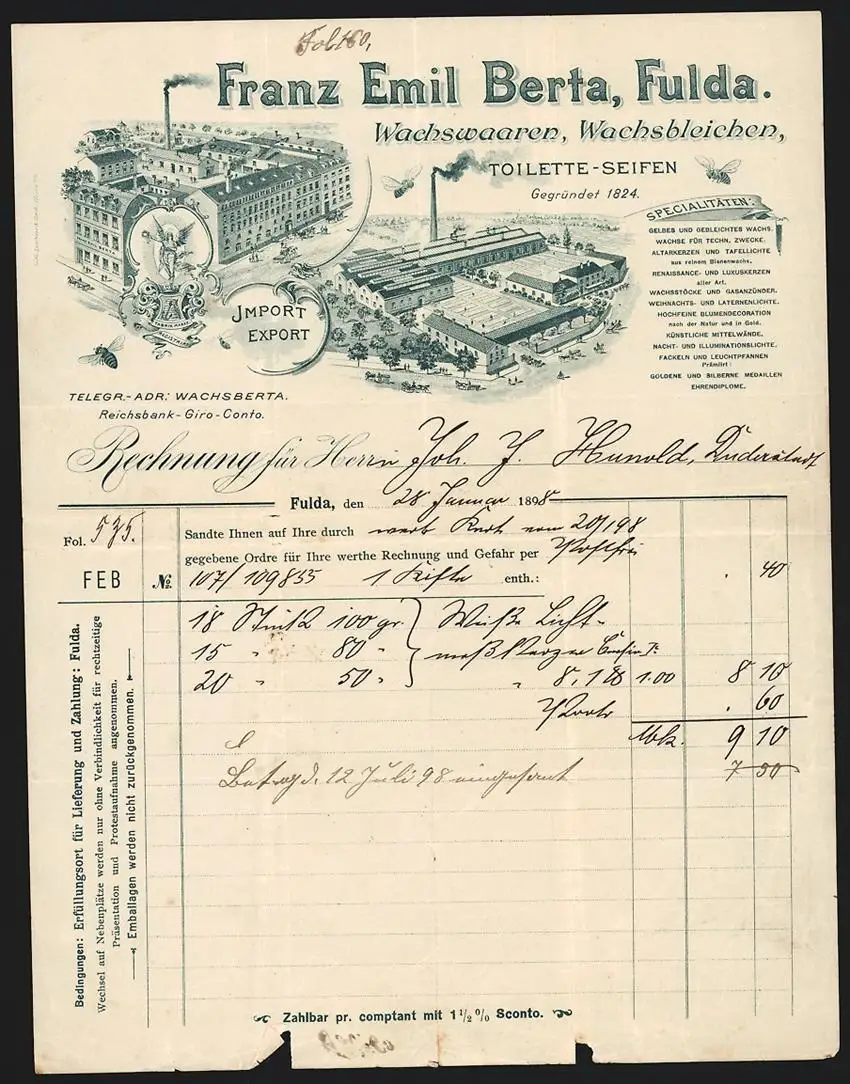 Fol 160,
Franz Emil Berta, Fulda.
Wachswaaren, Wachsbleichen,
TOILETTE-SEIFEN
Gegründet 1824.
SPECIALITÄTEN:
GELBES UND GEBLEICHTES WACHS.
WACHSE FÜR TECHN. ZWECKE.
ALTARKERZEN UND TAFELLICHTE
aus reinem Bienenwachs.
RENAISSANCE- UND LUXUSKERZEN
aller Art.
WACHSSTÖCKE UND GASANZÜNDER.
WEIHNACHTS- UND LATERNENLICHTE.
HOCHFEINE BLUMENDECORATION
nach der Natur und in Gold.
KÜNSTLICHE MITTELWÄNDE.
NACHT- UND ILLUMINATIONSLICHTE.
FACKELN UND LEUCHTPFANNEN
Prämiirt:
GOLDENE UND SILBERNE MEDAILLEN
EHRENDIPLOME.
FABRIK MARKE
JMPORT
EXPORT
TELEGR.-ADR.: WACHSBERTA.
Reichsbank-Giro-Conto.
Rechnung für Herrn Joh. J. Hunold, Duderstadt
Fulda, den 28 Januar 1898
Fol. 535.
Sandte Ihnen auf Ihre durch werth Kart vom 20/1 98
gegebene Ordre für Ihre werthe Rechnung und Gefahr per Postfrei
FEB № 107/109855 1 Kiste enth.: . 40
18 Stück 100 gr. Weiße Licht-
15 " 80 " meßkerzen
20 " 50 " " 8,1 1.00 8 10
Porto . 60
Mk. 9 10
7 50
Betrag d. 12 Juli 98 eingesant
Bedingungen: Erfüllungsort für Lieferung und Zahlung: Fulda.
Wechsel auf Nebenplätze werden nur ohne Verbindlichkeit für rechtzeitige
Präsentation und Protestaufnahme angenommen.
Emballagen werden nicht zurückgenommen.
Zahlbar pr. comptant mit 1 1/2 % Sconto.